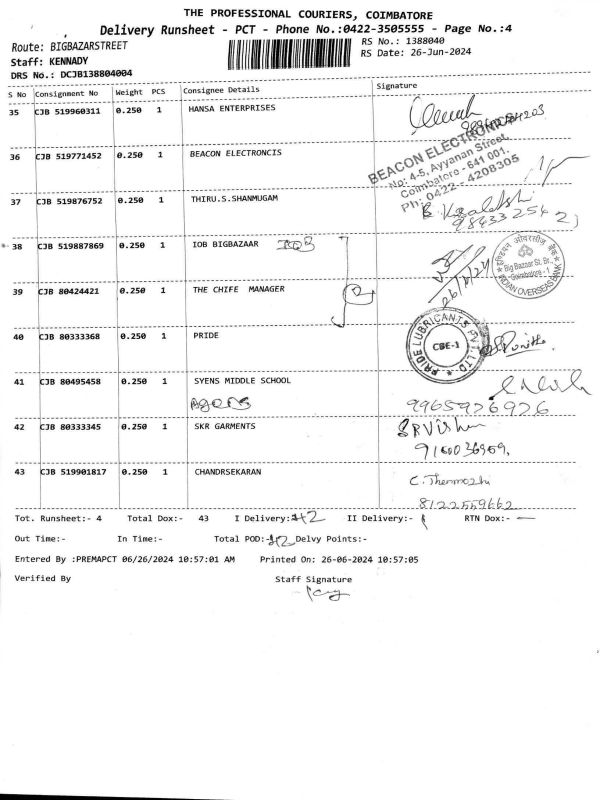 THE PROFESSIONAL COURIERS, COIMBATORE
Delivery Runsheet - PCT - Phone No.:0422-3505555 - Page No.:4
Route: BIGBAZARSTREET
RS No.: 1388040
Staff: KENNADY
RS Date: 26-Jun-2024
DRS No.: DCJB138804004
S No Consignment No Weight PCS Consignee Details Signature
35 CJB 519960311 0.250 1 HANSA ENTERPRISES
36 CJB 519771452 0.250 1 BEACON ELECTRONCIS
BEACON ELECTRONICS
No: 4-5, Ayyanan Street,
Coimbatore - 641 001.
Ph: 0422 - 4208305
37 CJB 519876752 0.250 1 THIRU.S.SHANMUGAM
98433 25421
38 CJB 519887869 0.250 1 IOB BIGBAZAAR IOB
26/6/24
इण्डियन ओवरसीज़ बैंक
Big Bazaar St. Br.
Coimbatore - 1
INDIAN OVERSEAS BANK
39 CJB 80424421 0.250 1 THE CHIFE MANAGER
40 CJB 80333368 0.250 1 PRIDE
PRIDE LUBRICANTS PVT. LTD
CBE-1
41 CJB 80495458 0.250 1 SYENS MIDDLE SCHOOL
9965926926
42 CJB 80333345 0.250 1 SKR GARMENTS
43 CJB 519901817 0.250 1 CHANDRSEKARAN
8122559662
Tot. Runsheet:- 4 Total Dox:- 43 I Delivery:- 42 II Delivery:- RTN Dox:- —
Out Time:- In Time:- Total POD:- 42 Delvy Points:-
Entered By :PREMAPCT 06/26/2024 10:57:01 AM Printed On: 26-06-2024 10:57:05
Verified By Staff Signature